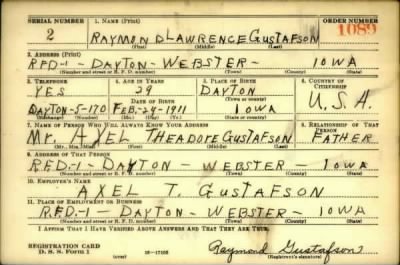 SERIAL NUMBER 1. NAME (Print) ORDER NUMBER
2 RAYMOND LAWRENCE GUSTAFSON 1089
(First) (Middle) (Last)
2. ADDRESS (Print)
RFD-1 - DAYTON - WEBSTER - IOWA
(Number and street or R. F. D. number) (Town) (County) (State)
3. TELEPHONE 4. AGE IN YEARS 5. PLACE OF BIRTH 6. COUNTRY OF CITIZENSHIP
YES 29 DAYTON
DATE OF BIRTH (Town or county) U.S.A.
DAYTON-5-170 FEB-24-1911 IOWA
(Exchange) (Number) (Mo.) (Day) (Yr.) (State or country)
7. NAME OF PERSON WHO WILL ALWAYS KNOW YOUR ADDRESS 8. RELATIONSHIP OF THAT PERSON
Mr. AXEL THEADORE GUSTAFSON FATHER
(Mr., Mrs., Miss) (First) (Middle) (Last)
9. ADDRESS OF THAT PERSON
R.F.D.-1 - DAYTON - WEBSTER - IOWA
(Number and street or R. F. D. number) (Town) (County) (State)
10. EMPLOYER'S NAME
AXEL T. GUSTAFSON
11. PLACE OF EMPLOYMENT OR BUSINESS
R.F.D.-1 - DAYTON - WEBSTER - IOWA
(Number and street or R. F. D. number) (Town) (County) (State)
I AFFIRM THAT I HAVE VERIFIED ABOVE ANSWERS AND THAT THEY ARE TRUE.
REGISTRATION CARD
D. S. S. Form 1 Raymond Gustafson
(Registrant's signature)